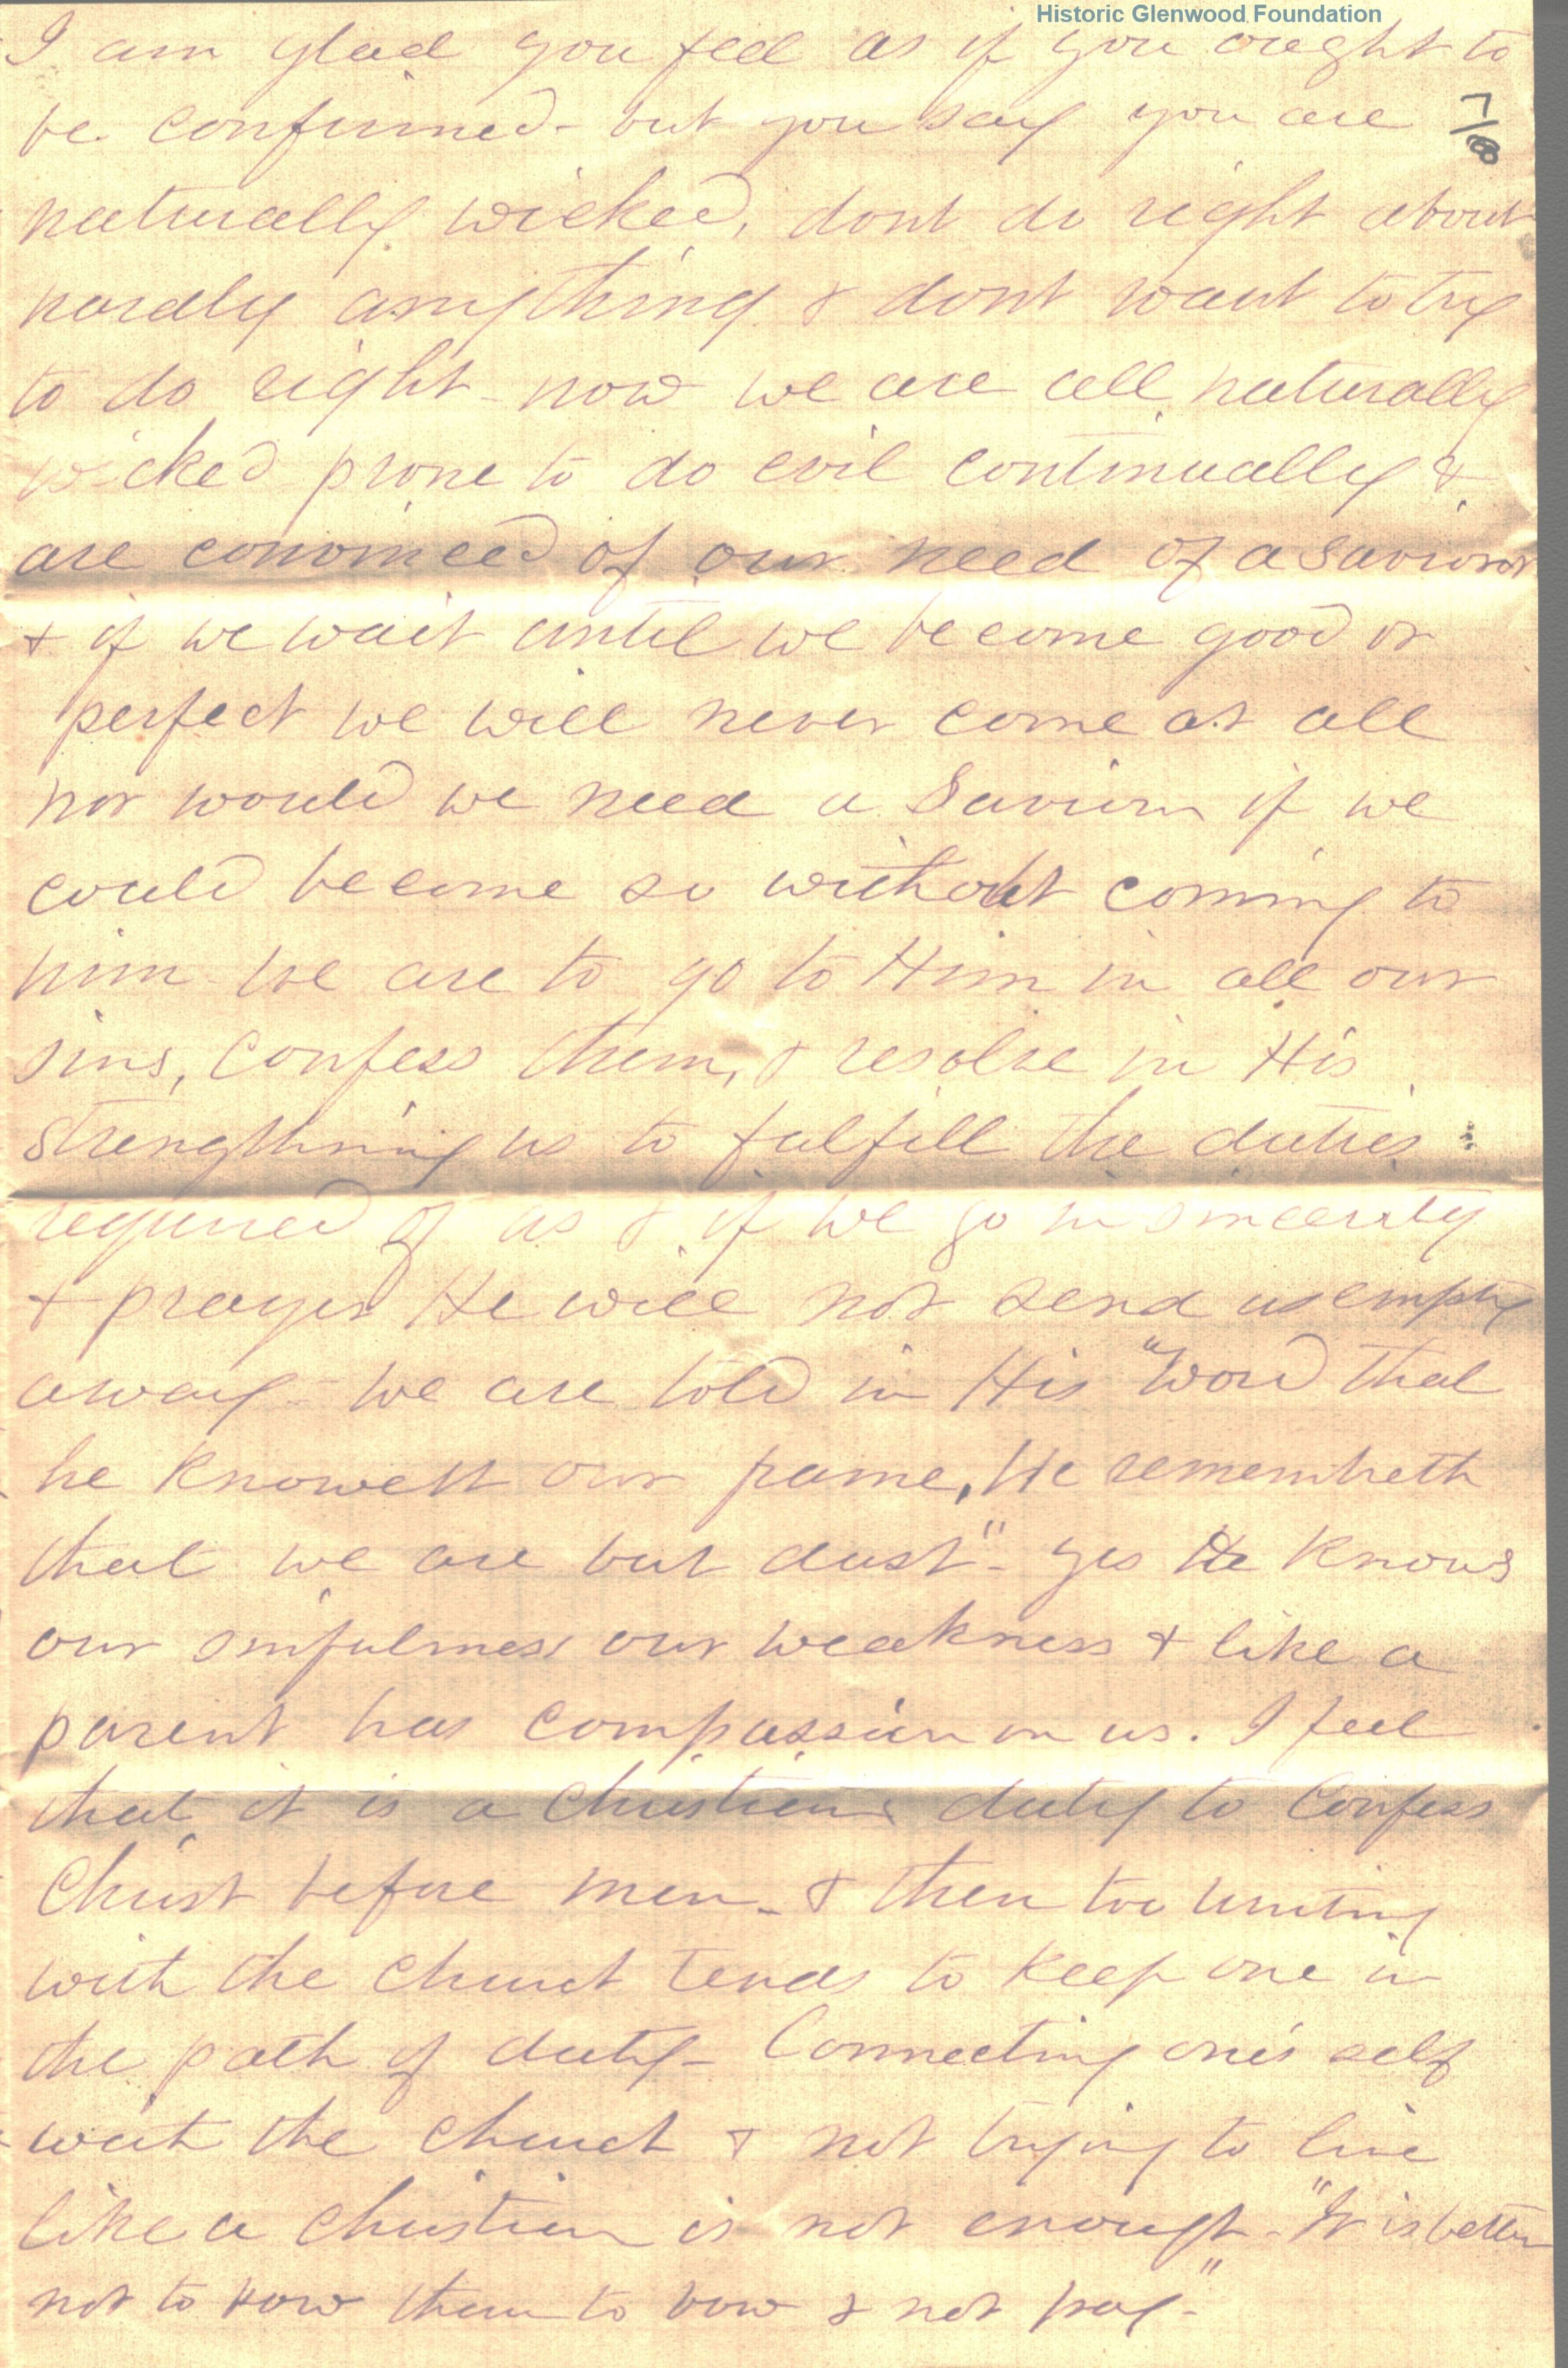 Historic Glenwood Foundation
I am glad you feel as if you ought to
be confirmed - but you say you are 7/8
naturally wicked, dont do right about
hardly anything & dont want to try
to do right - now we are all naturally
wicked prone to do evil continually &
are convinced of our need of a Saviour
& if we wait until we become good or
perfect we will never come at all
nor would we need a Saviour if we
could become so without coming to
him. We are to go to Him in all our
sins, confess them, & resolve in His
strengthning us to fulfill the duties
required of us & if we go in sincerity
& prayer He will not send us empty
away - we are told in His "Word that
he knoweth our frame, He remembreth
that we are but dust" - yes He knows
our sinfulness our weakness & like a
parent has compassion on us. I feel
that it is a Christians duty to Confess
Christ before men - & then too Uniting
with the church tends to keep one in
the path of duty - Connecting one's self
with the church & not trying to live
like a Christian is not enough - "It is better
not to vow than to vow & not pay - "